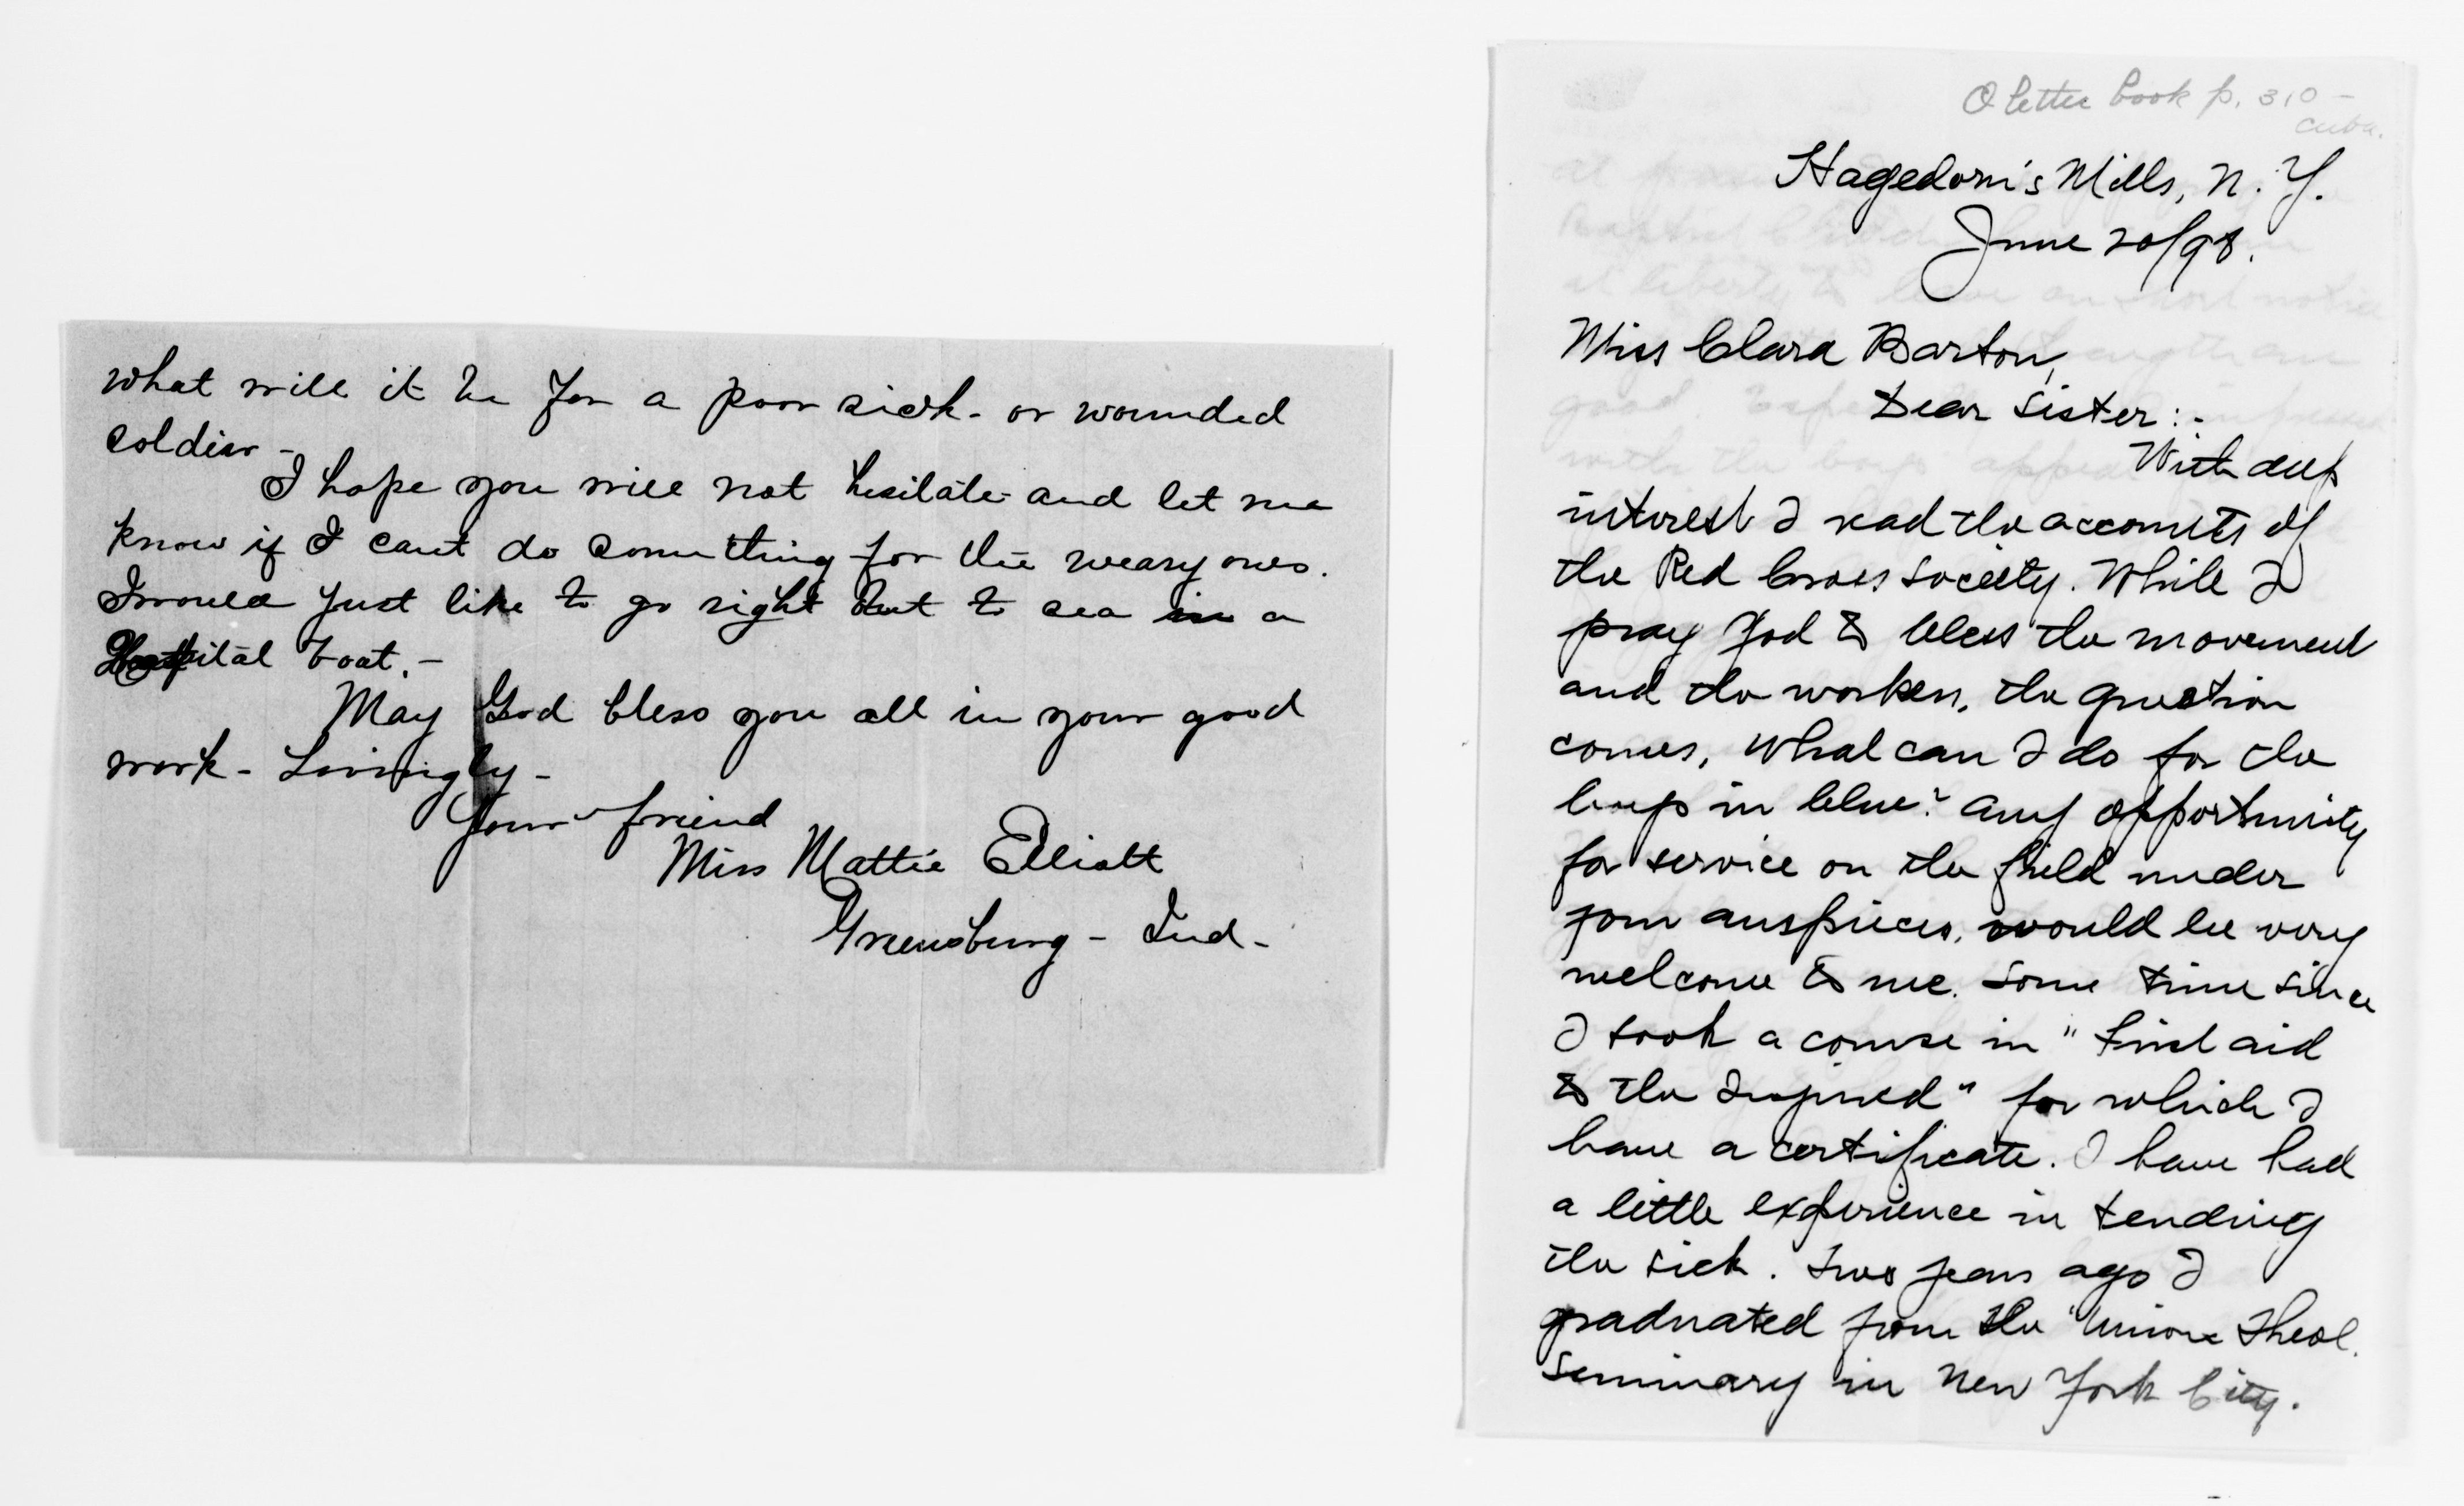 what will it be for a poor sick - or wounded
soldier -
I hope you will not hesitate - and let me
know if I cant do something for the weary ones.
I would just like to go right out to sea in a
Hospital boat. -
May God bless you all in your good
work - Lovingly -
Your friend
Miss Mattie Elliott
Greensburg - Ind -
O letter book p. 310 -
Cuba.
Hagedorn's Mills, N. Y.
June 20/98.
Miss Clara Barton,
Dear Sister :-
With deep
interest I read the accounts of
the Red Cross Society. While I
pray God to bless the movement
and the workers, the question
comes, What can I do for the
boys in blue? Any opportunity
for service on the field under
your auspices, would be very
welcome to me. Some time since
I took a course in "First aid
to the Injured" for which I
have a certificate. I have had
a little experience in tending
the sick. Two years ago I
graduated from the "Union Theol.
Seminary in New York City.